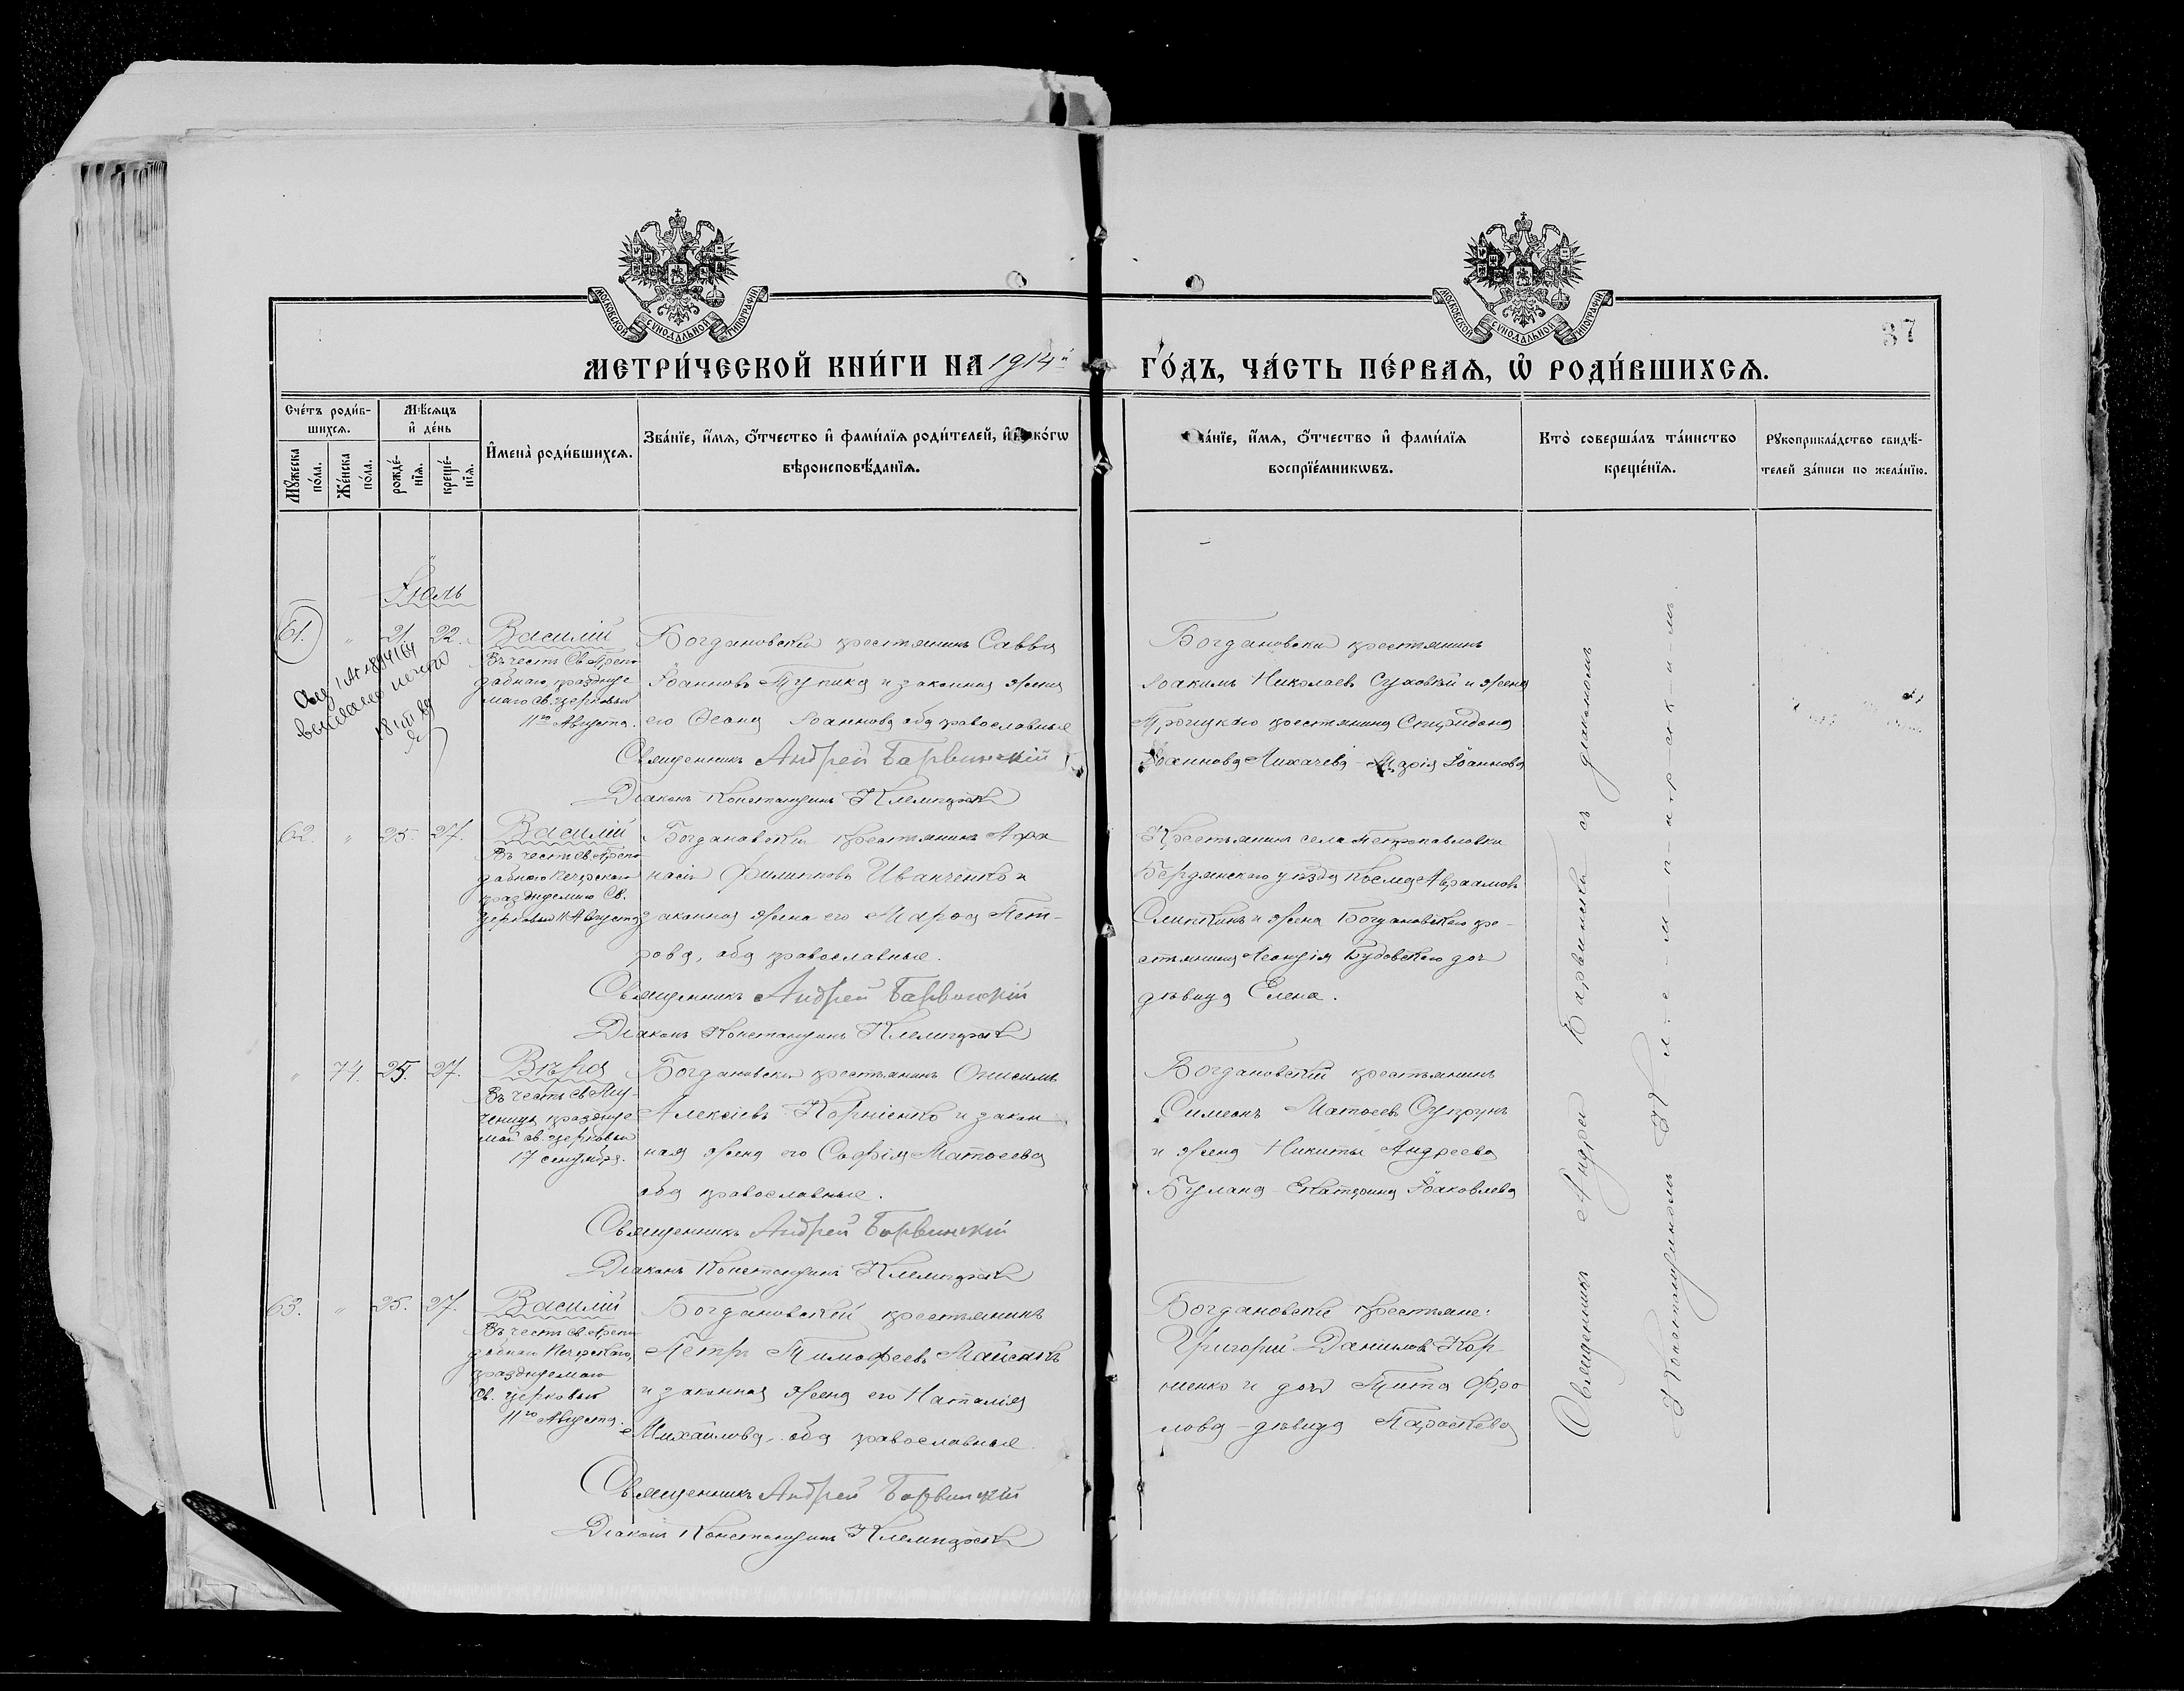 МОСКОВСКОЙ СѴНОДАЛЬНОЙ ТИПОГРАФІИ
МОСКОВСКОЙ СѴНОДАЛЬНОЙ ТИПОГРАФІИ
37
МЕТРИ́ЧЕСКОЙ КНИ́ГИ НА 1914й ГО́ДЪ, ЧА́СТЬ ПЕ́РВАѦ, Ѡ҆ РОДИ́ВШИХСѦ.
Сче́тъ роди́в-
шихсѧ.
Мѣ́сѧцъ
и҆ де́нь
Мꙋ́жеска по́ла.
Же́нска по́ла.
рожде́-нїѧ.
креще́-нїѧ.
И҆мена̀ роди́вшихсѧ.
Зва́нїе, и҆́мѧ, ѻ҆́тчество и҆ фами́лїѧ роди́телей, и҆ како́гѡ
вѣроисповѣ́данїѧ.
Зва́нїе, и҆́мѧ, ѻ҆́тчество и҆ фами́лїѧ
воспрїе́мникѡвъ.
Кто̀ соверша́лъ та́инство
креще́нїѧ.
Рꙋкоприкла́дство свидѣ́-
телей за́писи по жела́нїю.
Іюль
61. " 21. 22.
Василій
Въ честь Св. Препо
добнаго, празднуе
маго св. церковью
11го Августа.
Богдановскій крестьянинъ Савва
Іоанновъ Тупика и законная жена
его Ѳеана Іоаннова оба православные
Священникъ Андрей Барвинскій
Діаконъ Константинъ
Богдановскій крестьянинъ
Іоакимъ Николаевъ Суховѣй и жена
Троицкаго крестьянина Спиридона
Іоаннова Лихачева - Марія Іоаннова
18.III.89
62. " 25. 27.
Василій
Въ честь св. Препо
добнаго Печерскаго
празднуемаго Св.
Церковью 11 Августа
Богдановскій крестьянинъ Афа
насій Филипповъ Иванченко и
законная жена его Марѳа Пет-
рова, оба православные.
Священникъ Андрей Барвинскій
Діаконъ Константинъ
Крестьянинъ села Петропавловки
Бердянскаго уѣзда Косма Авраамовъ
Слипкинъ и жена Богдановскаго кре-
стьянина Леонтія Будовскаго дочь
дѣвица Елена.
" 74. 25. 27.
Вѣра
Въ честь св. Му-
ченицы празднуе
мой св. церковью
17 сентября.
Богдановскій крестьянинъ Онисимъ
Алексіевъ Корніенко и закон
ная жена его Софія Матѳеева
оба православные.
Священникъ Андрей Барвинскій
Діаконъ Константинъ
Богдановскій крестьянинъ
Симеонъ Матѳеевъ Супрунъ
и жена Никиты Андреева
Булана - Екатерина Іаковлева
63. " 25. 27.
Василій
Въ честь св. Препо
добнаго Печерскаго,
празднуемаго
Св. Церковью
11го Августа.
Богдановскій крестьянинъ
Петръ Тимофеевъ
и законная жена его Наталія
Михайлова, оба православные
Священникъ Андрей Барвинскій
Діаконъ Константинъ
Богдановскіе крестьяне:
Григорій Даніиловъ Кор
ніенко и дочь Тита Фро
лова - дѣвица Параскева
Священникъ Андрей Барвинскій съ діакономъ
Константиномъ